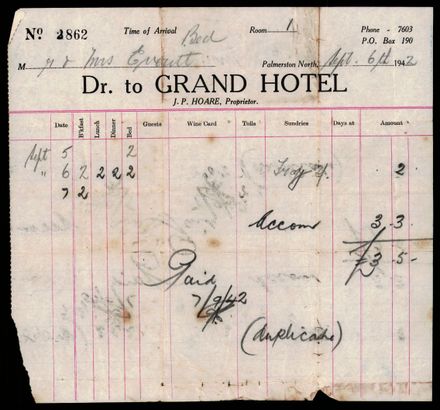 Nº 2862 Time of Arrival Bed Room 1 Phone - 7603
P.O. Box 190
M r & Mrs Palmerston North, Sept. 6th 1942
Dr. to GRAND HOTEL
J. P. HOARE, Proprietor.
Date B'kfast Lunch Dinner Bed Guests Wine Card Tolls Sundries Days at Amount
Sept 5 2
" 6 2 2 2 2 Tray 2
7 2
Accom 3. 3
£3. 5.-
Paid
7/9/42
(duplicate)